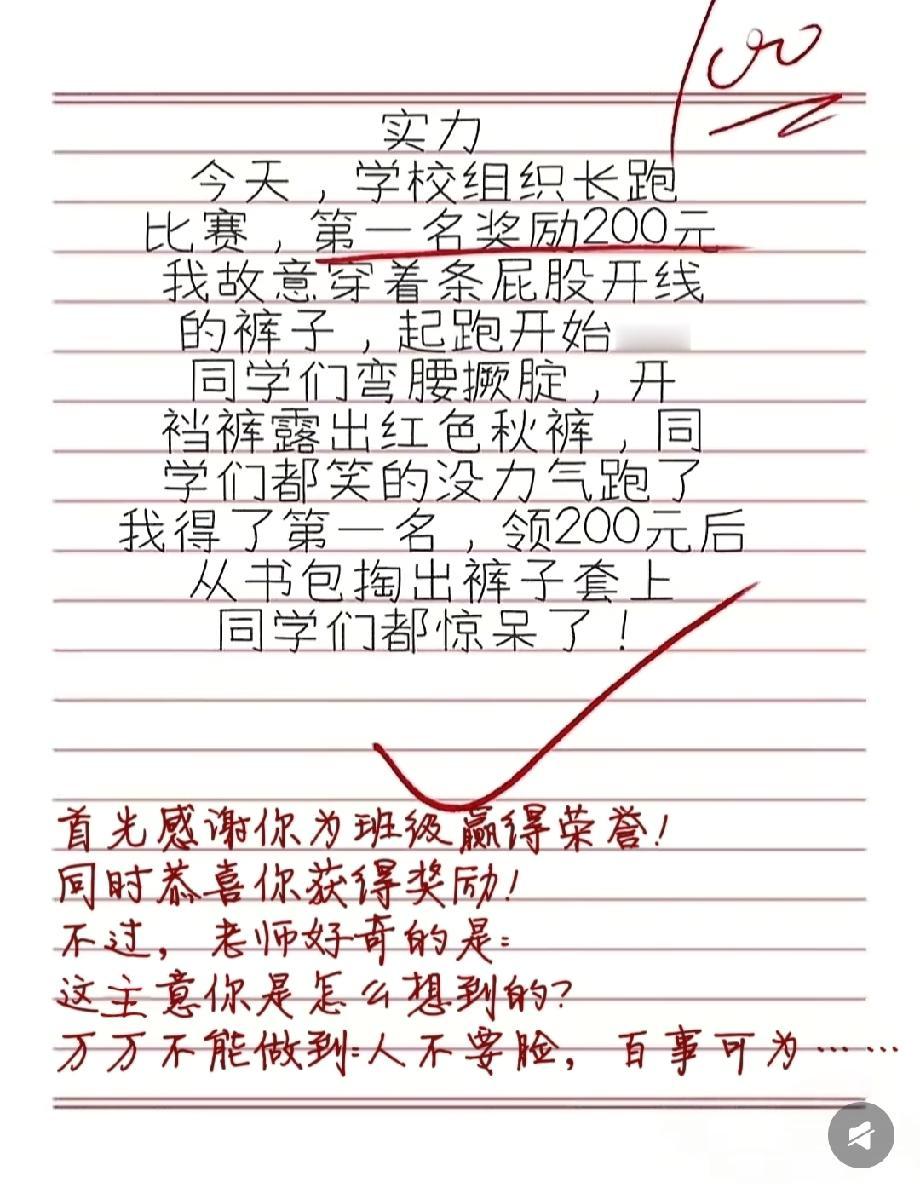 100
实力
今天，学校组织长跑
比赛，第一名奖励200元
我故意穿着条屁股开线
的裤子，起跑开始
同学们弯腰撅腚，开
裆裤露出红色秋裤，同
学们都笑的没力气跑了
我得了第一名，领200元后
从书包掏出裤子套上
同学们都惊呆了！
首先感谢你为班级赢得荣誉！
同时恭喜你获得奖励！
不过，老师好奇的是：
这主意你是怎么想到的？
万万不能做到：人不要脸，百事可为……